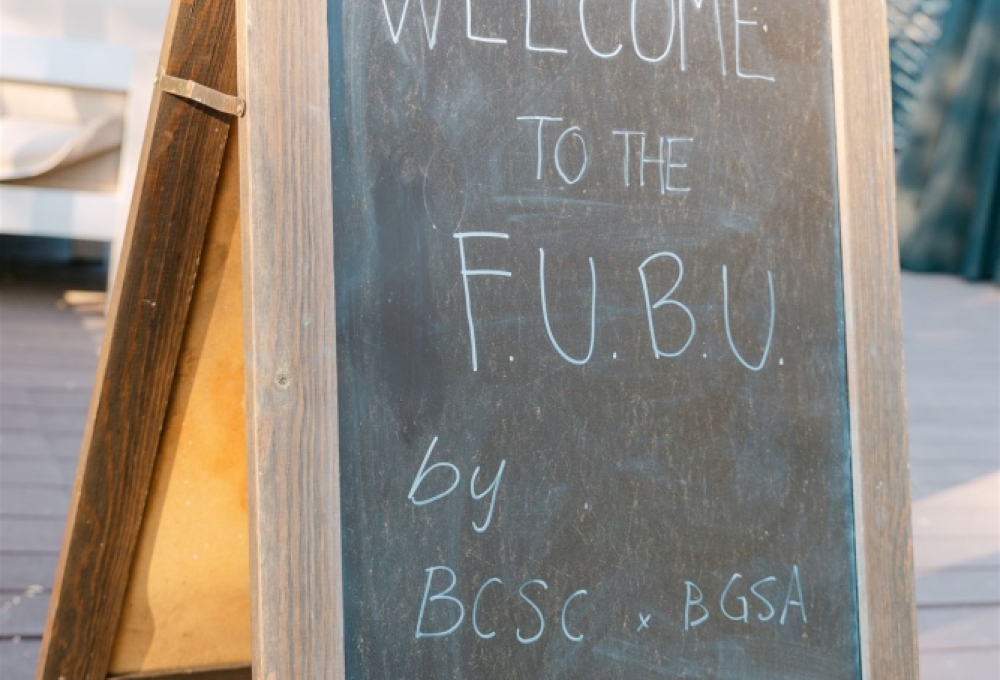 WELCOME
TO THE
F.U.B.U.
by
BCSC x BGSA